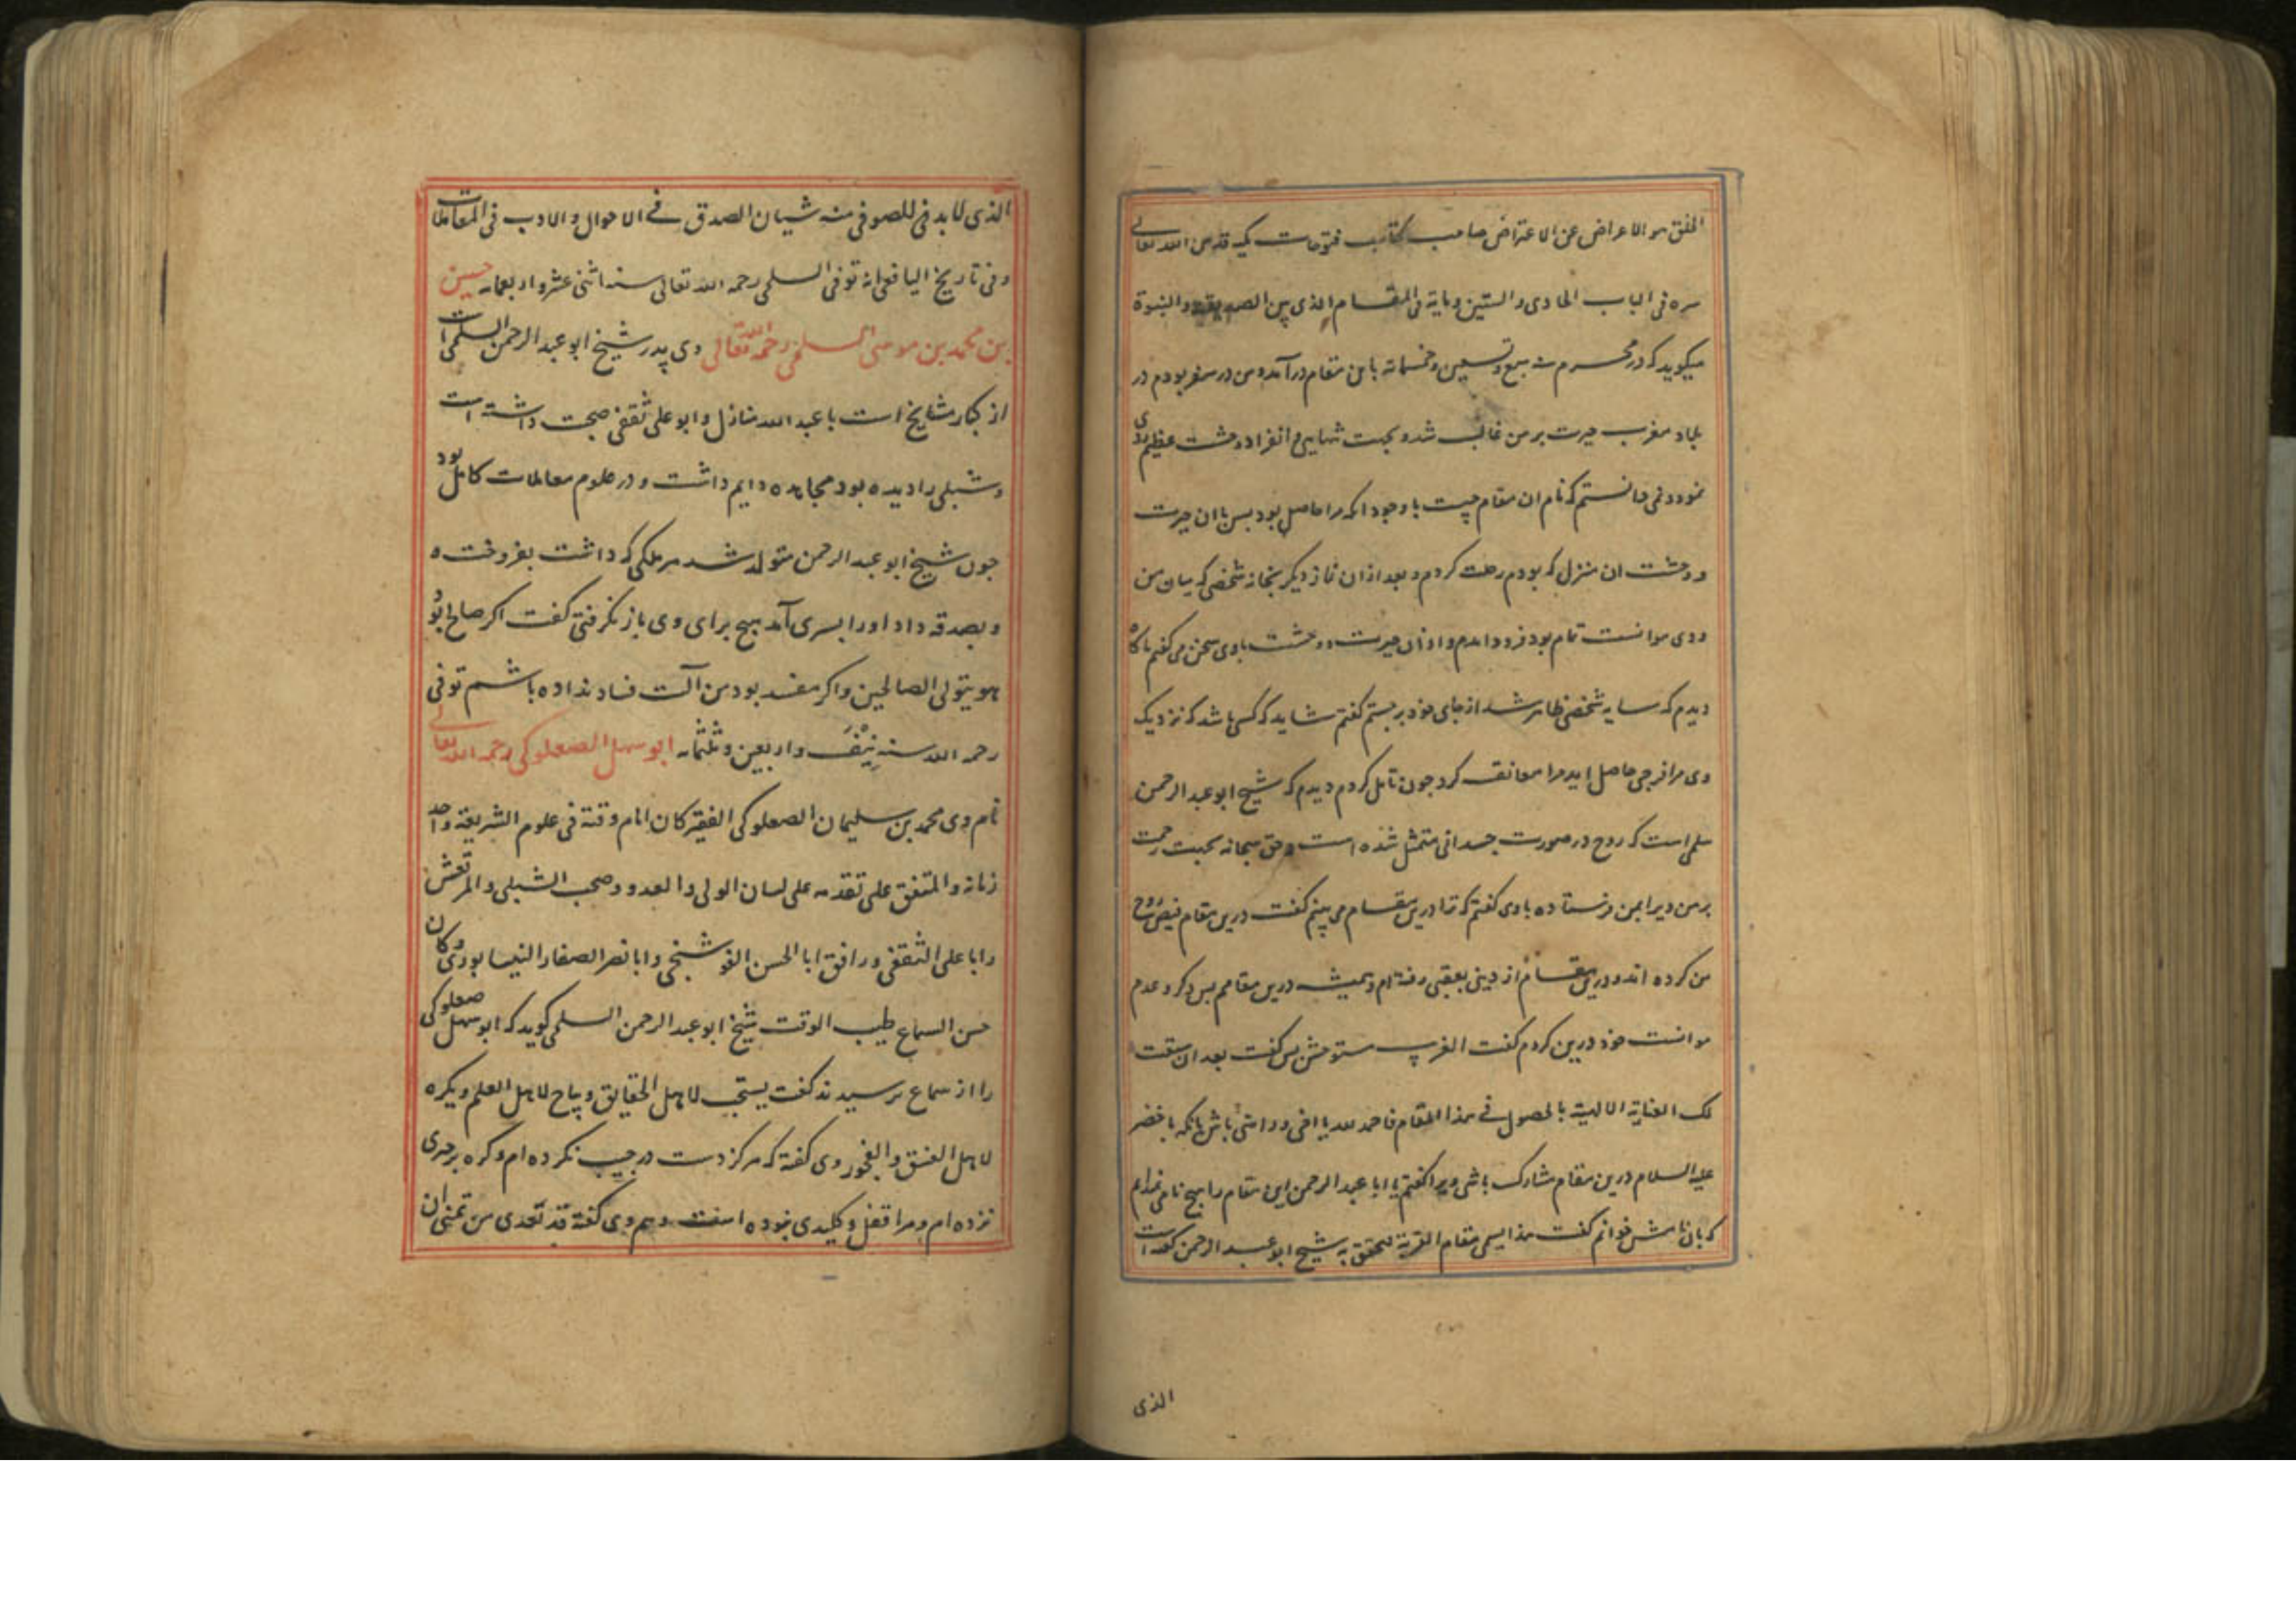 الخلق هو الاعراض عن الاعتراض صاحب کتاب فتوحات مکیه قدس الله تعالی
سره فی الباب الحادی والستین ومایة فی المقام الذی بین الصدیقیة والنبوة
میکوید که در محرم سنه سبع وتسعین وخمسمائة باین مقام درآمدم ومن در سفر بودم در
بلاد مغرب حیرت بر من غالب شد و بجهت تنهایی و انفراد وحشت عظیم روی
نمود و نمی دانستم که نام ان مقام چیست با وجود آنکه مرا حاصل بود پس با ان حیرت
و وحشت ان منزل که بودم رحلت کردم و بعد از ان نماز دیگر بخانه شخصی که میان من
و وی موانست تمام بود فرود امدم و از ان حیرت و وحشت با وی سخن می کفتم ناکاه
دیدم که سایه شخصی ظاهر شد از جای خود برجستم کفتم شاید که کسی باشد که نزدیک
وی مرا فرجی حاصل اید مرا معانقه کرد جون تامل کردم دیدم که شیخ ابو عبد الرحمن
سلمی است که روح در صورت جسدانی متمثل شده است و حق سبحانه بجهت رحمت
بر من ویرا بمن فرستاده با وی کفتم که ترا درین مقام می بینم کفت درین مقام قبض روح
من کرده اند و درین مقام از دینی بعقبی رفته ام و همیشه درین مقامم پس ذکر و عدم
موانست خود درین کردم کفت الغریب مستوحش پس کفت بعد ان سبقت
لک العنایة الالهیة بالحصول فی هذا المقام فاحمد لله یا اخی و راضی باش بانکه با خضر
علیه السلام درین مقام مشارک باشی ویرا کفتم یا ابا عبد الرحمن این مقام را هیچ نامی ندانم
که بان نامش خوانم کفت هذا یسمی مقام القربة فتحقق به شیخ ابو عبد الرحمن کفته است
الذی
الذی لابد للصوفی منه شیئان الصدق فی الاحوال والادب فی المعاملات
وفی تاریخ الیافعی انه توفی السلمی رحمه الله تعالی سنه اثنی عشر واربعمایه حسین
بن محمد بن موسی السلمی رحمه الله تعالی وی پدر شیخ ابو عبد الرحمن السلمی است
از کبار مشایخ است با عبد الله منازل و ابو علی ثقفی صحبت داشته است
و شبلی را دیده بود مجاهده دایم داشت و در علوم معاملات کامل بود
جون شیخ ابو عبد الرحمن متولد شد هر ملکی که داشت بفروخت ه
و بصدقه داد او را بسری آمد هیچ برای وی باز نکرفتی کفت اکر صالح بود
هو یتولی الصالحین و اکر مفسد بود من آلت فساد نداده باشم توفی
رحمه الله سنه نیّف و اربعین و ثلثمایه ابو سهل الصعلوکی رحمه الله تعالی
نام وی محمد بن سلیمان الصعلوکی الفقیه کان امام وقته فی علوم الشریعة واحد
زمانه والمتفق علی تقدمه علی لسان الولی والعدو وصحب الشبلی والمرتعش
وابا علی الثقفی ورافق ابا الحسن الفوشنجی وابا نصر الصفار النیسابوری وکان
حسن السماع طیب الوقت شیخ ابو عبد الرحمن السلمی کوید که ابو سهل صعلوکی
را از سماع پرسیدند کفت یستحب لاهل الحقایق ویباح لاهل العلم ویکره
لاهل الفسق والفجور وی کفته که هرکز دست در جیب نکرده ام و کره بر چیزی
نزده ام و مرا قفل و کلیدی نبوده است و هم وی کفته قد تعدی من تمنی ان